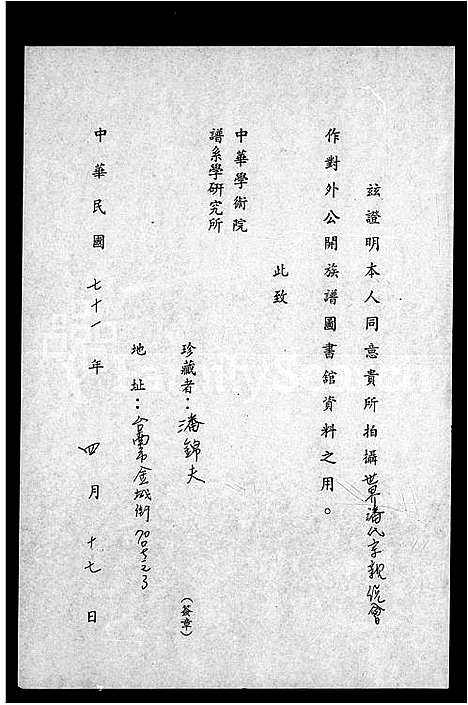 茲證明本人同意貴所拍攝世界潘氏宗親總會
作對外公開族譜圖書館資料之用。
此致
中華學術院
譜系學研究所
珍藏者：潘錦夫
（簽章）
地址：台南市金城街
中華民國七十一年四月十七日